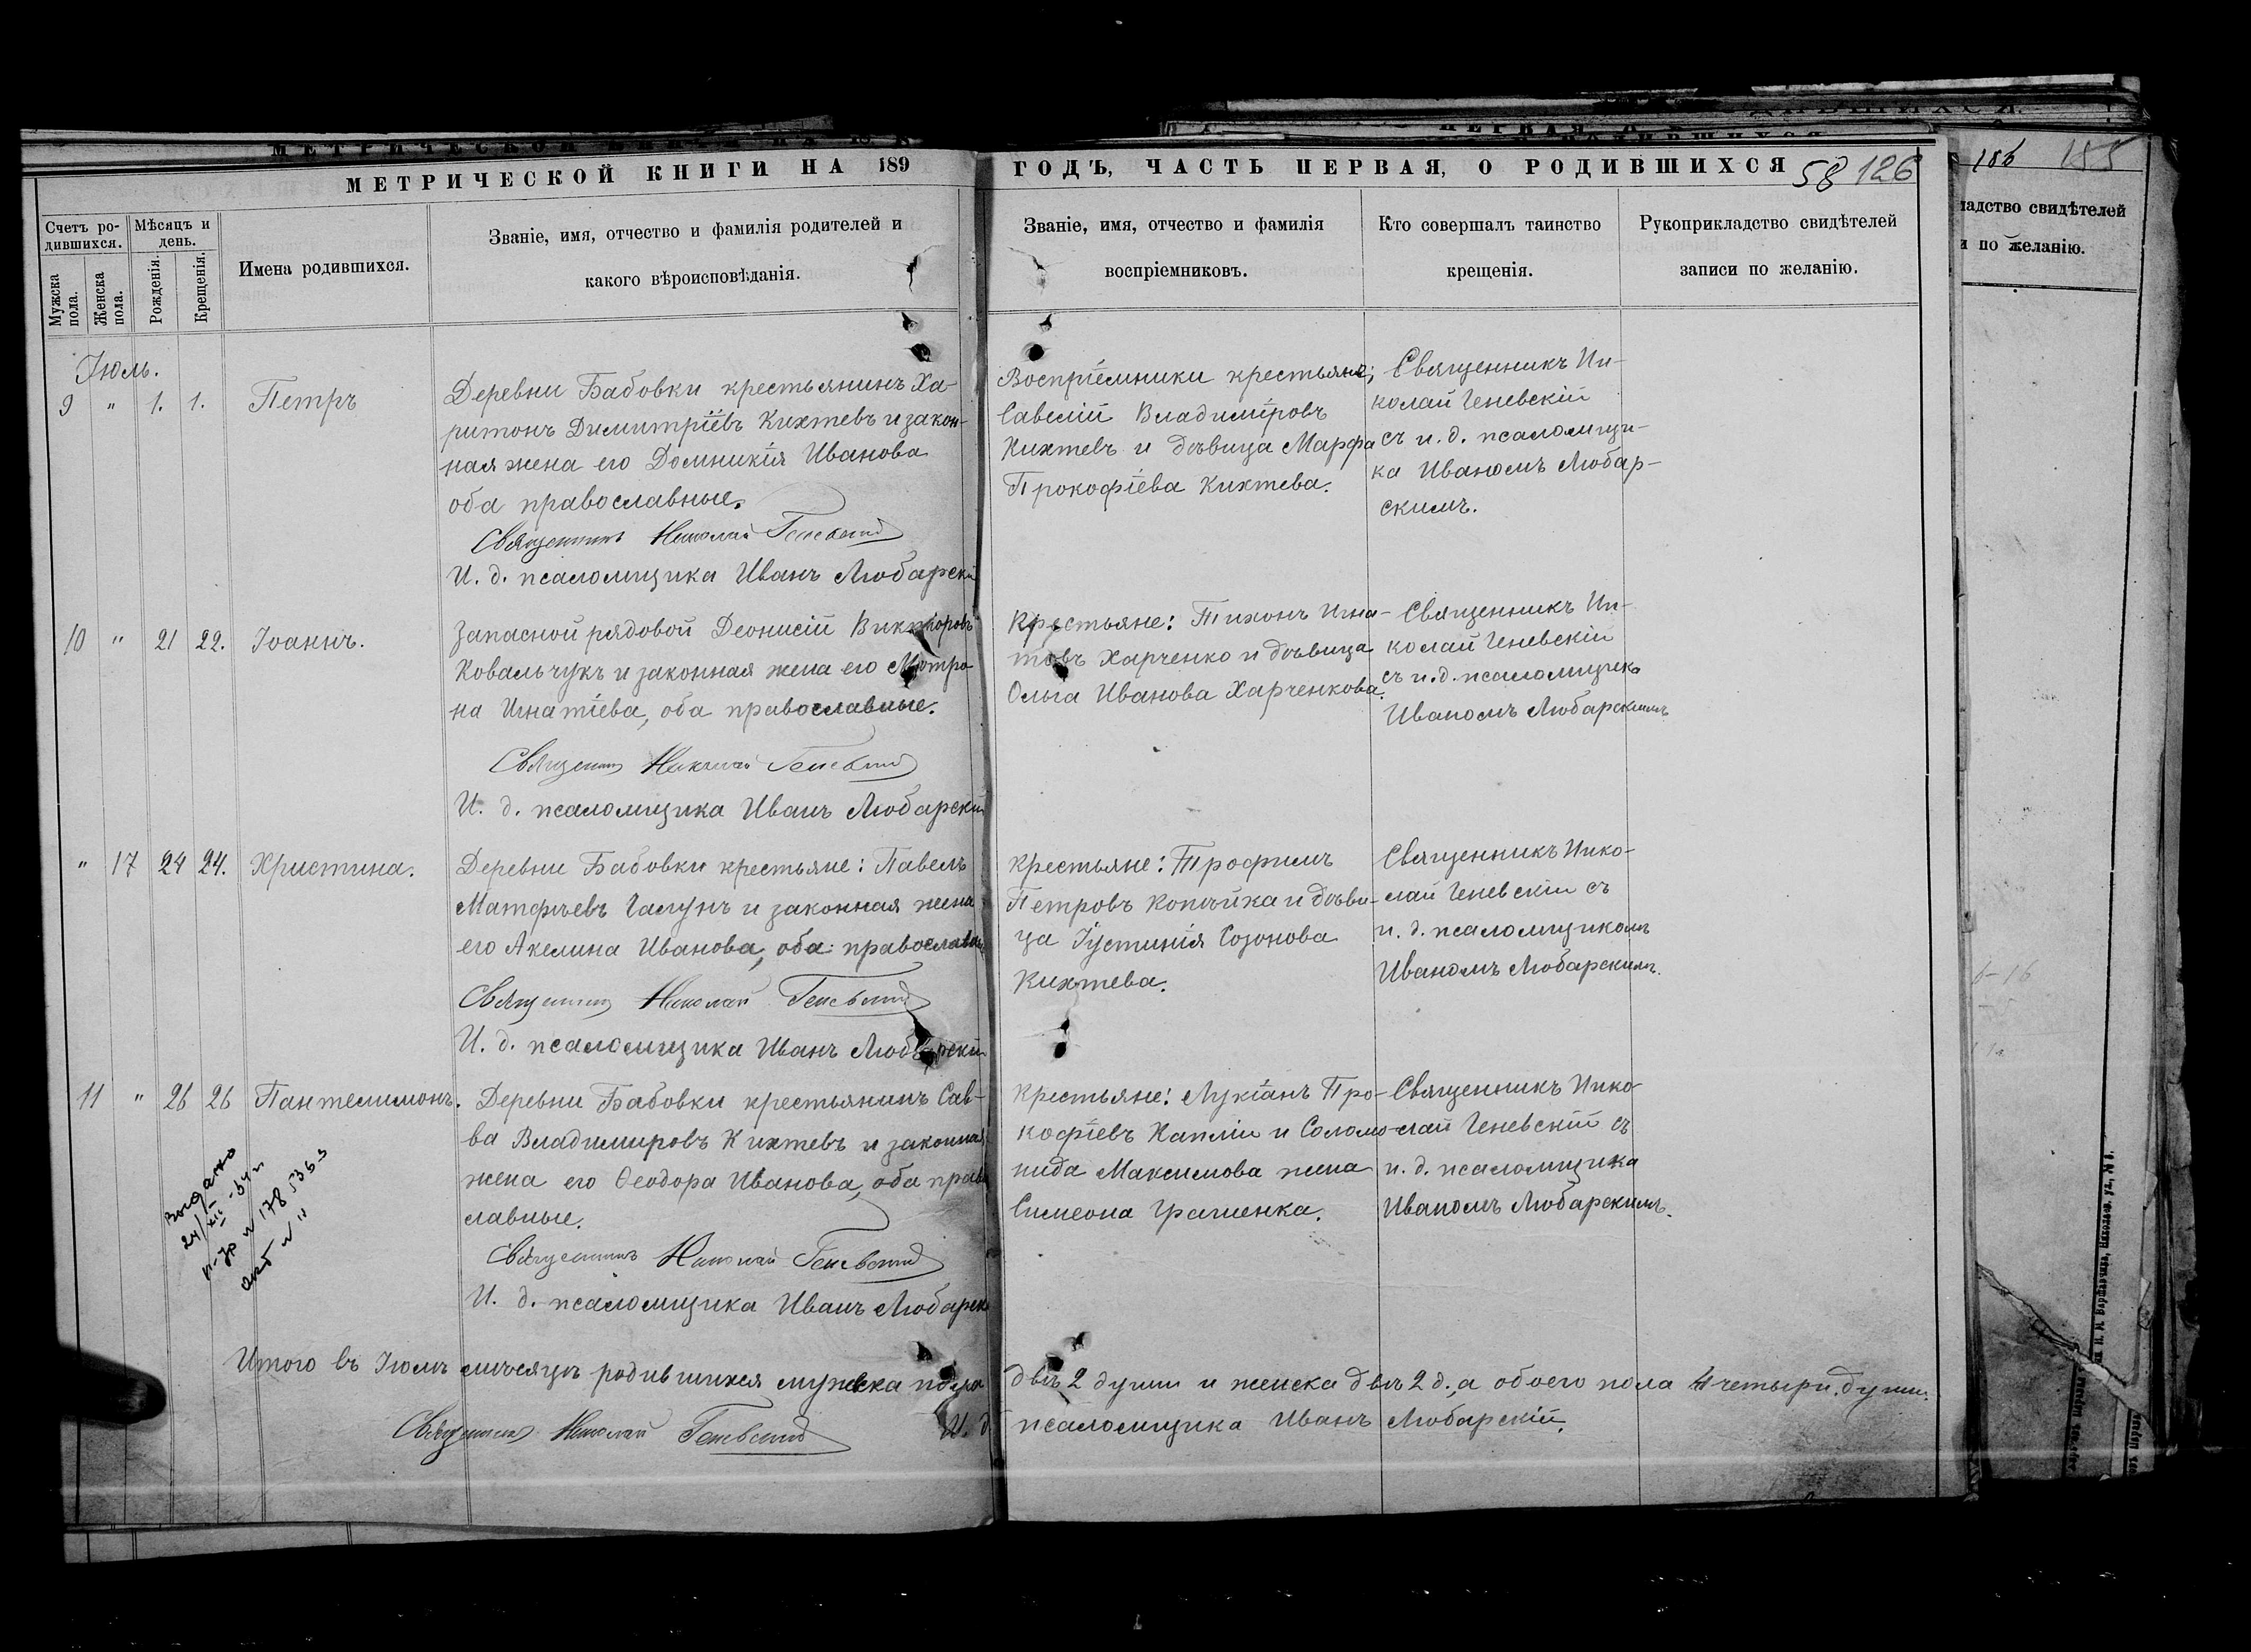 МЕТРИЧЕСКОЙ КНИГИ НА 189
ГОДЪ, ЧАСТЬ ПЕРВАЯ, О РОДИВШИХСЯ
58 126
Счетъ ро-
дившихся.
Мужска
пола.
Женска
пола.
Мѣсяцъ и
день.
Рожденія.
Крещенія.
Имена родившихся.
Званіе, имя, отчество и фамилія родителей и
какого вѣроисповѣданія.
Званіе, имя, отчество и фамилія
воспріемниковъ.
Кто совершалъ таинство
крещенія.
Рукоприкладство свидѣтелей
записи по желанію.
Іюль.
9 " 1. 1. Петръ
Деревни Бабовки крестьянинъ Ха-
ритонъ Димитріевъ Кихтевъ и закон-
ная жена его Домникія Иванова
оба православные.
Священникъ Николай Геневскій
И. д. псаломщика Иванъ Любарскій
Воспріемники крестьяне;
Савелій Владиміровъ
Кихтевъ и дѣвица Марфа
Прокофіева Кихтева.
Священникъ Ни-
колай Геневскій
съ и. д. псаломщи-
ка Иваномъ Любар-
скимъ.
10 " 21 22. Іоаннъ.
Запасной рядовой Деонисій Викторовъ
Ковальчукъ и законная жена его Мотро
на Игнатіева, оба православные.
Священникъ Николай Геневскій
И. д. псаломщика Иванъ Любарскій
Крестьяне: Тихонъ Игна-
товъ Харченко и дѣвица
Ольга Иванова Харченкова.
Священникъ Ни-
колай Геневскій
съ и. д. псаломщика
Иваномъ Любарскимъ
" 17 24 24. Христина.
Деревни Бабовки крестьяне: Павелъ
Матфѣевъ Галунъ и законная жена
его Акелина Иванова, оба православн
Священникъ Николай Геневскій
И. д. псаломщика Иванъ Любарскій
Крестьяне: Трофимъ
Петровъ Копѣйка и дѣви-
ца Іустинія Созонова
Кихтева.
Священникъ Нико-
лай Геневскій съ
и. д. псаломщикомъ
Иваномъ Любарскимъ.
11 " 26 26 Пантелимонъ.
Деревни Бабовки крестьянинъ Сав-
ва Владимировъ Кихтевъ и законная
жена его Ѳеодора Иванова, оба право
славные.
Священникъ Николай Геневскій
И. д. псаломщика Иванъ Любарск
Крестьяне: Лукіанъ Про-
кофіевъ Каплій и Соломо-
нида Максимова жена
Симеона Грашенка.
Священникъ Нико-
лай Геневскій съ
и. д. псаломщика
Иваномъ Любарскимъ.
24/XII-64 г
Итого въ Іюлѣ мѣсяцѣ родившихся мужска пола
двѣ 2 души и женска двѣ 2 д., а обоего пола 4 четыри души.
Священникъ Николай Геневскій И. д
псаломщика Иванъ Любарскій.
186 185
ладство свидѣтелей
и по желанію.